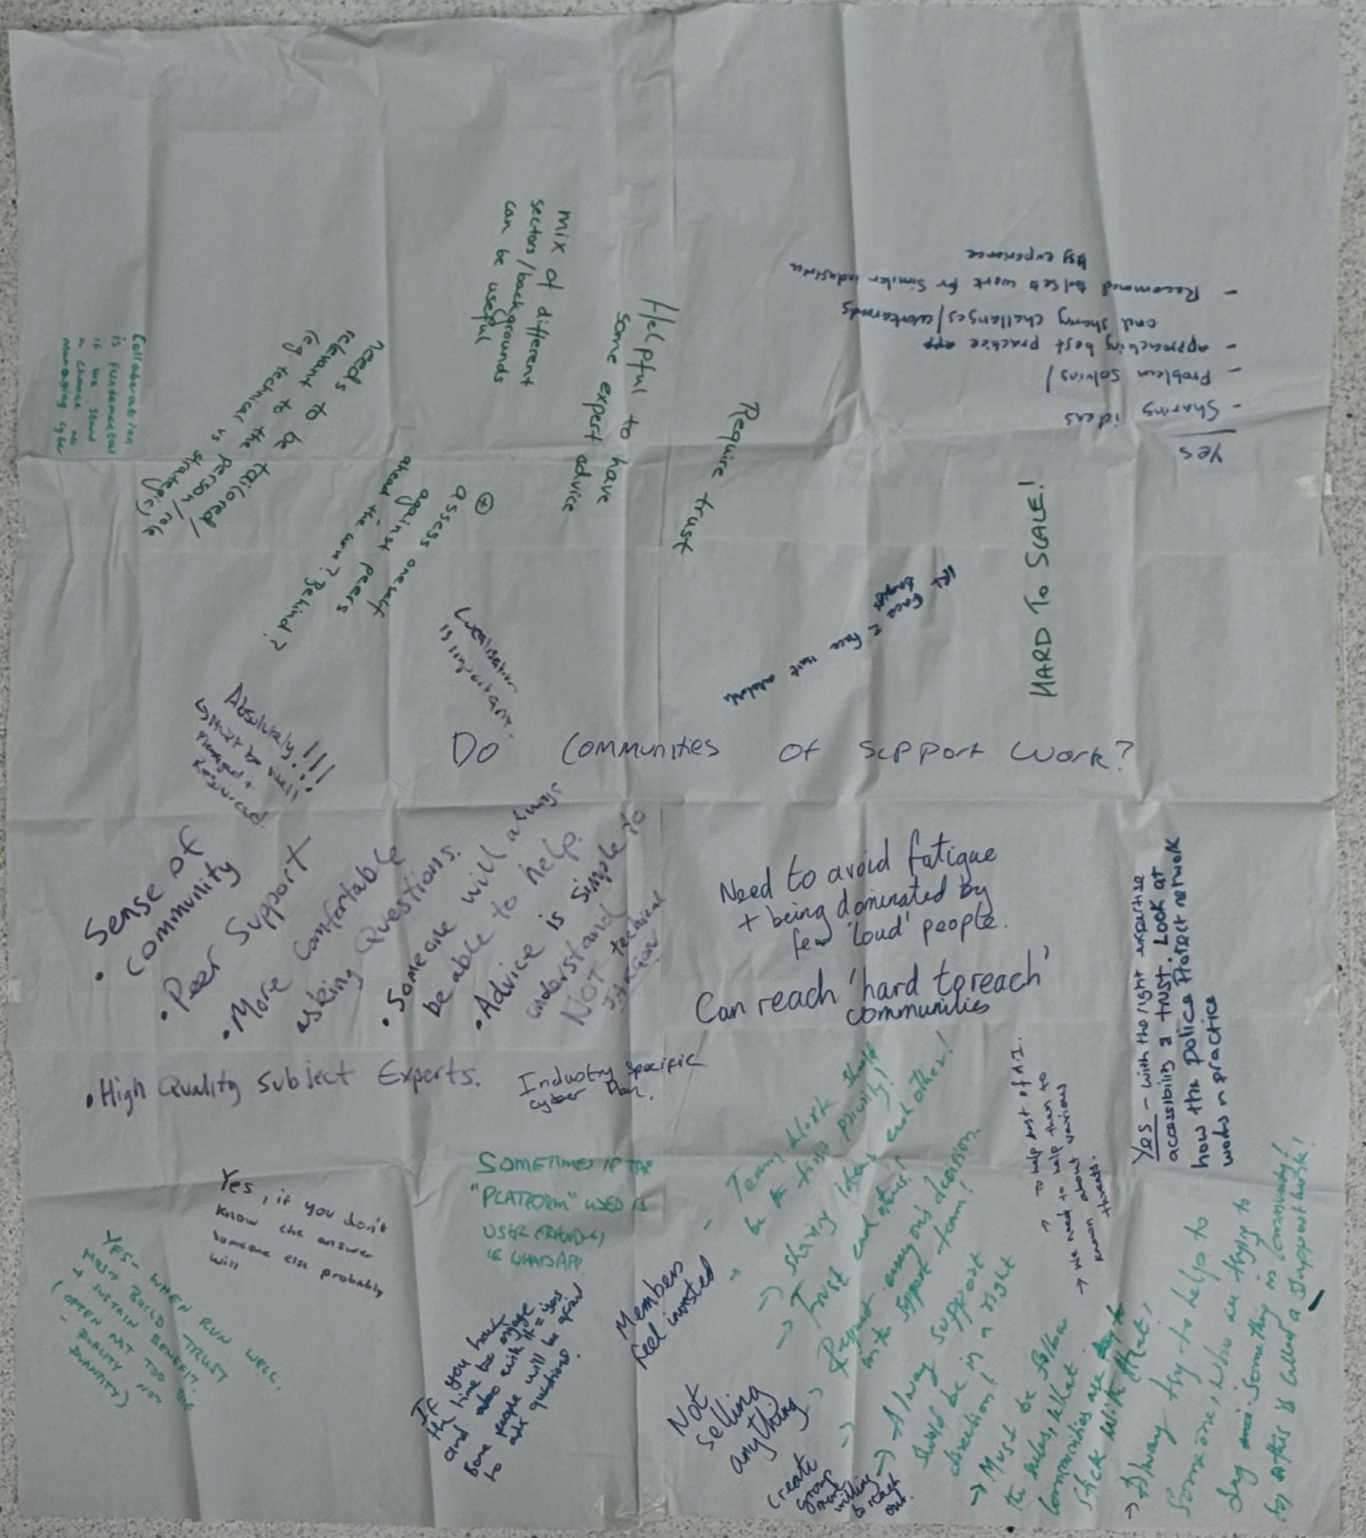 mix of different
sectors/backgrounds
can be useful
Helpful to have
some expert advice
Require trust
Collaboration
is fundamental
if we stand
a chance
managing cyber
Needs to be tailored/
relevant to the person/role
(eg technical vs strategic)
+
assess oneself
against peers
ahead the curve? Behind?
Yes
- Sharing ideas
- Problem solving/
- approaching best practice
and sharing challenges/workarounds
- Recommend toolsets work for similar industries
by experience
HARD TO SCALE!
Face 2 face isn't
Localisation
is important.
Absolutely!!!
↳ Must be well
Managed +
Resourced.
Do Communities of Support Work?
• Sense of
community
• Peer Support
• More Comfortable
asking Questions.
• Someone will always
be able to help.
• Advice is simple to
understand
NOT technical
Jargon
• High Quality Subject Experts.
Industry Specific
cyber
Need to avoid fatigue
+ being dominated by
few 'loud' people.
Can reach 'hard to reach'
communities
Yes - with the right expertise
accessibility & trust. Look at
how the Police Protect network
works in practice
→ To help best of A.I.
→ we need to help them to
known about various
threats.
Yes, if you don't
know the answer
someone else probably
will
YES - WHEN RUN WELL.
MUST BUILD TRUST
+ SUSTAIN BENEFIT.
(OFTEN NOT TOO BIG
- QUALITY NOT
QUANTITY)
SOMETIMES IF THE
"PLATFORM" USED IS
USER FRIENDLY
IE WHATSAPP
If you have
the time to engage
and
Some people will be afraid
to ask questions.
Members
feel invested
Not
selling
anything
create
group
more
willing
to reach
out.
→ Team Work should
be the first priority!
→ Sharing ideas each other!
→ Trust each other!
→ Respect everyone's decision
in the support team!
→ Always support
should be in a right
direction!
→ Must be follow
the rules, what
communities are
stick with that!
→ Always try to help to
someone, who are trying to
say something in community!
this is called a Support work!